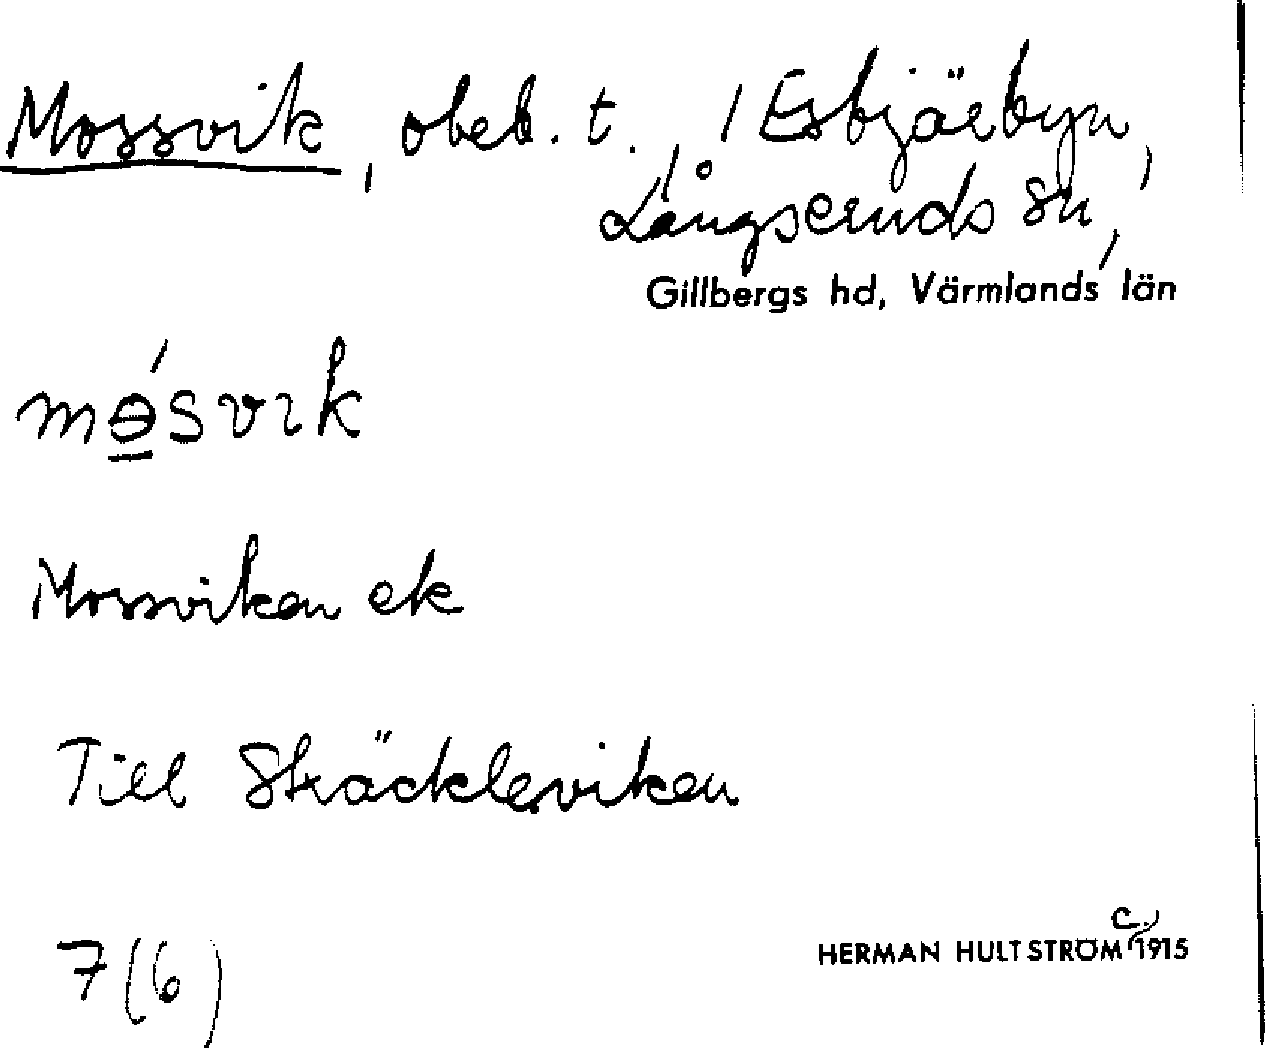 Mossvik, obeb. t., i Esbjörbyn,
Långseruds sn,
Gillbergs hd, Värmlands län
mɵ́svik
Mossviken ek
Till Skäckleviken
7(6)
HERMAN HULTSTRÖM c. 1915